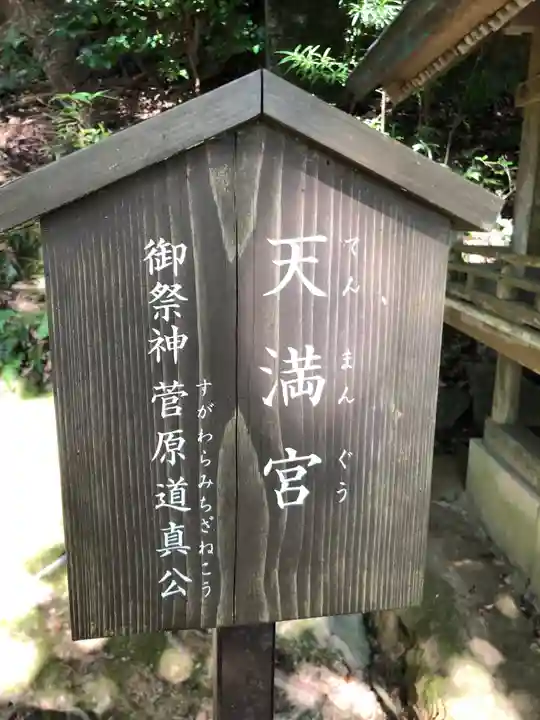 天満宮
てんまんぐう
御祭神 菅原道真公
すがわらみちざねこう